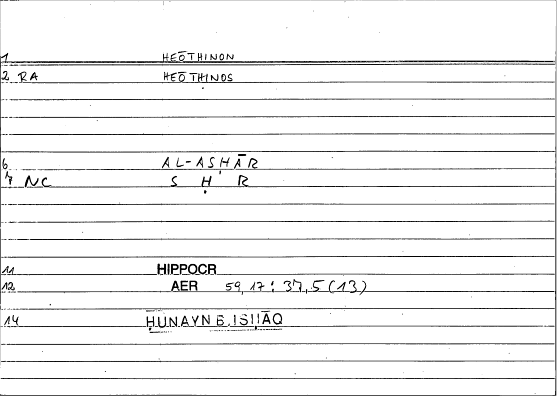 1 HEŌTHINON
2 RA HEŌTHINOS
6 AL-ASḤĀR
7 NC S Ḥ R
11 HIPPOCR
12 AER 59,17 : 37,5 (13)
14 ḤUNAYN B. ISḤĀQ